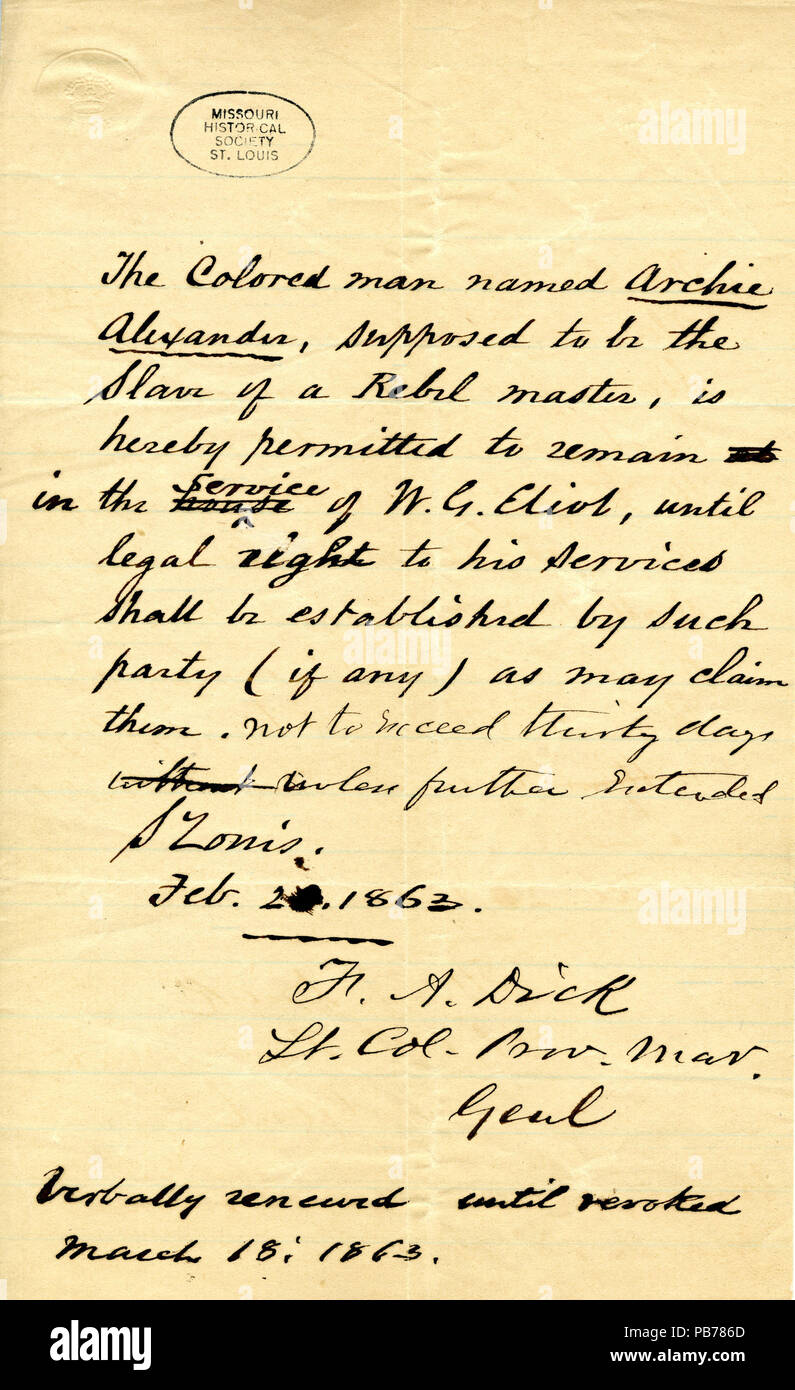 MISSOURI
HISTORICAL
SOCIETY
ST. LOUIS
The Colored man named Archie
Alexander, supposed to be the
Slave of a Rebel master, is
hereby permitted to remain at
in the house service of W. G. Eliot, until
legal right to his services
shall be established by such
party (if any) as may claim
them. not to Exceed thirty days
without unless further Extended
St Louis.
Feb. 1863.
F. A. Dick
Lt. Col. Prov. Mar.
Genl
Verbally renewed until revoked
March 18: 1863.
a alamy
a alamy
a alamy
alamy
Image ID: PB786D
www.alamy.com